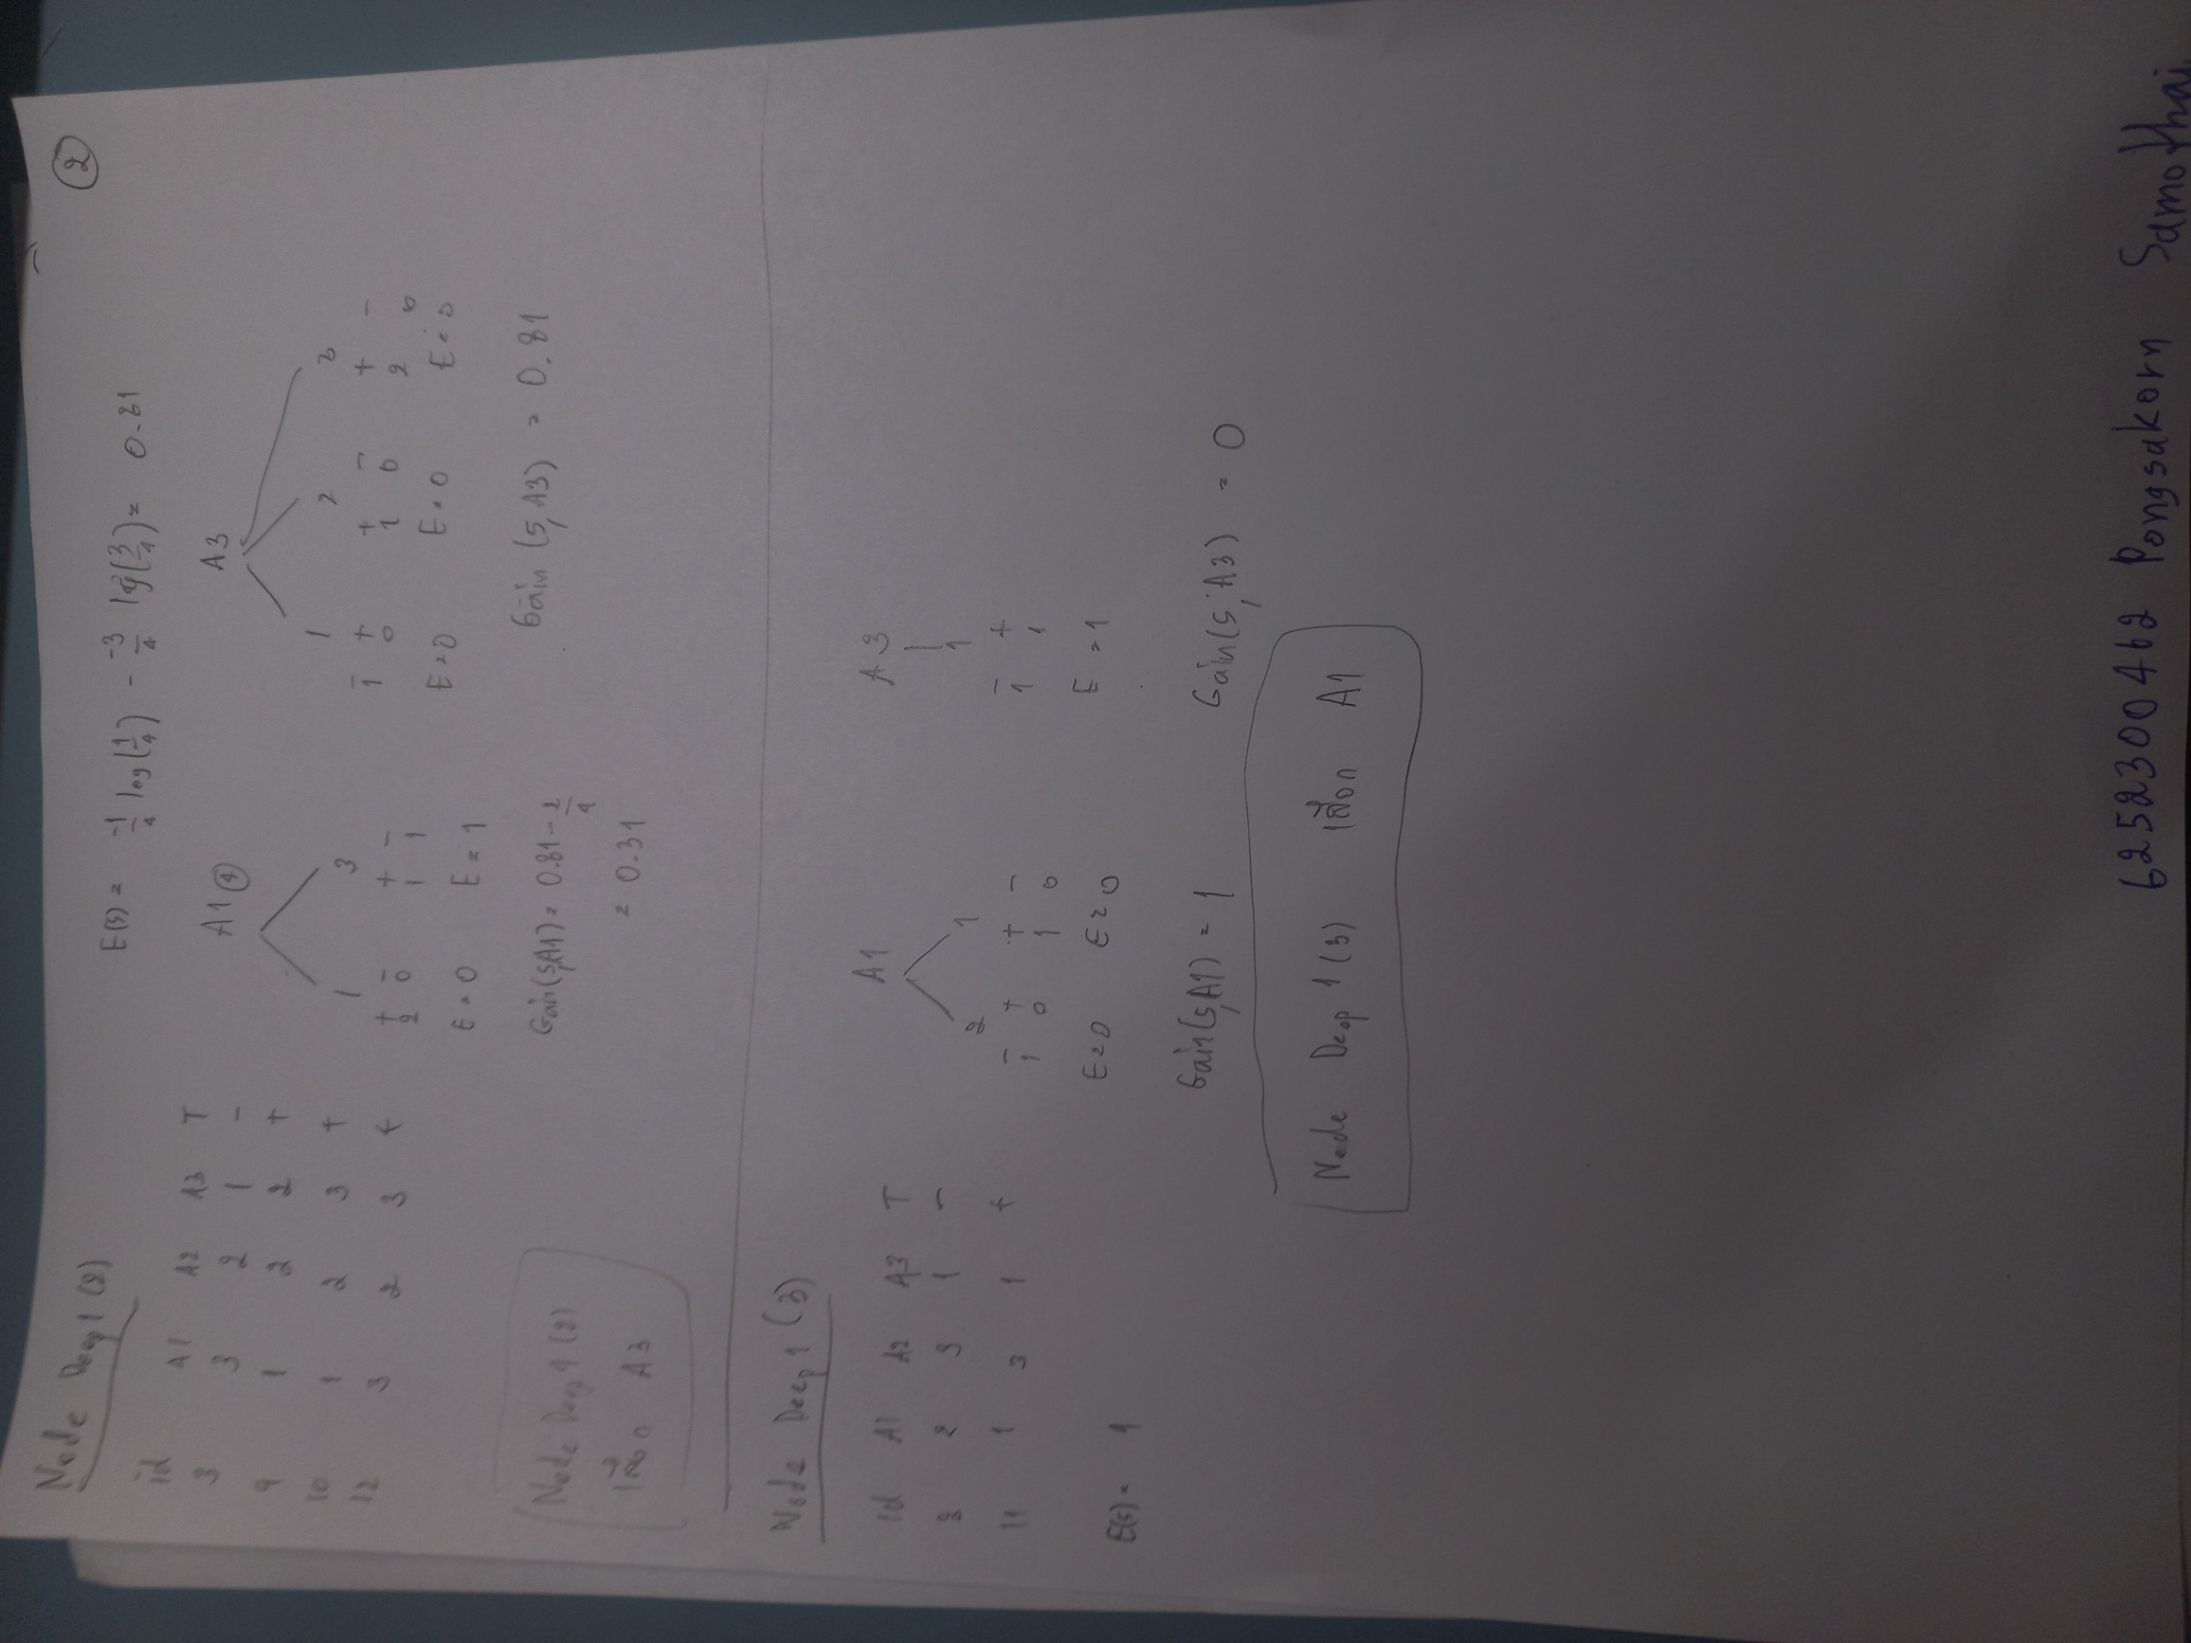 ②
Node Deep 1 (2)
E(S) = -1/4 log(1/4) - -3/4 log(3/4) = 0.81
id A1 A2 A3 T
3 3 2 1 -
9 1 2 2 +
10 1 2 3 +
12 3 2 3 +
A1 ④
1 3
+ - + -
2 0 1 1
E = 0 E = 1
Gain(S,A1) = 0.81 - 2/4
= 0.31
A3
1 2 3
- + + - + -
1 0 1 0 2 0
E = 0 E = 0 E = 0
Gain (S, A3) = 0.81
Node Deep 1 (2)
เลือก A3
Node Deep 1 (3)
id A1 A2 A3 T
8 2 3 1 -
11 1 3 1 +
E(S) = 1
A1
2 1
- + + -
1 0 1 0
E = 0 E = 0
Gain(S,A1) = 1
A3
1
- +
1 1
E = 1
Gain(S, A3) = 0
Node Deep 1 (3) เลือก A1
6252300462 Pongsakorn Samothai